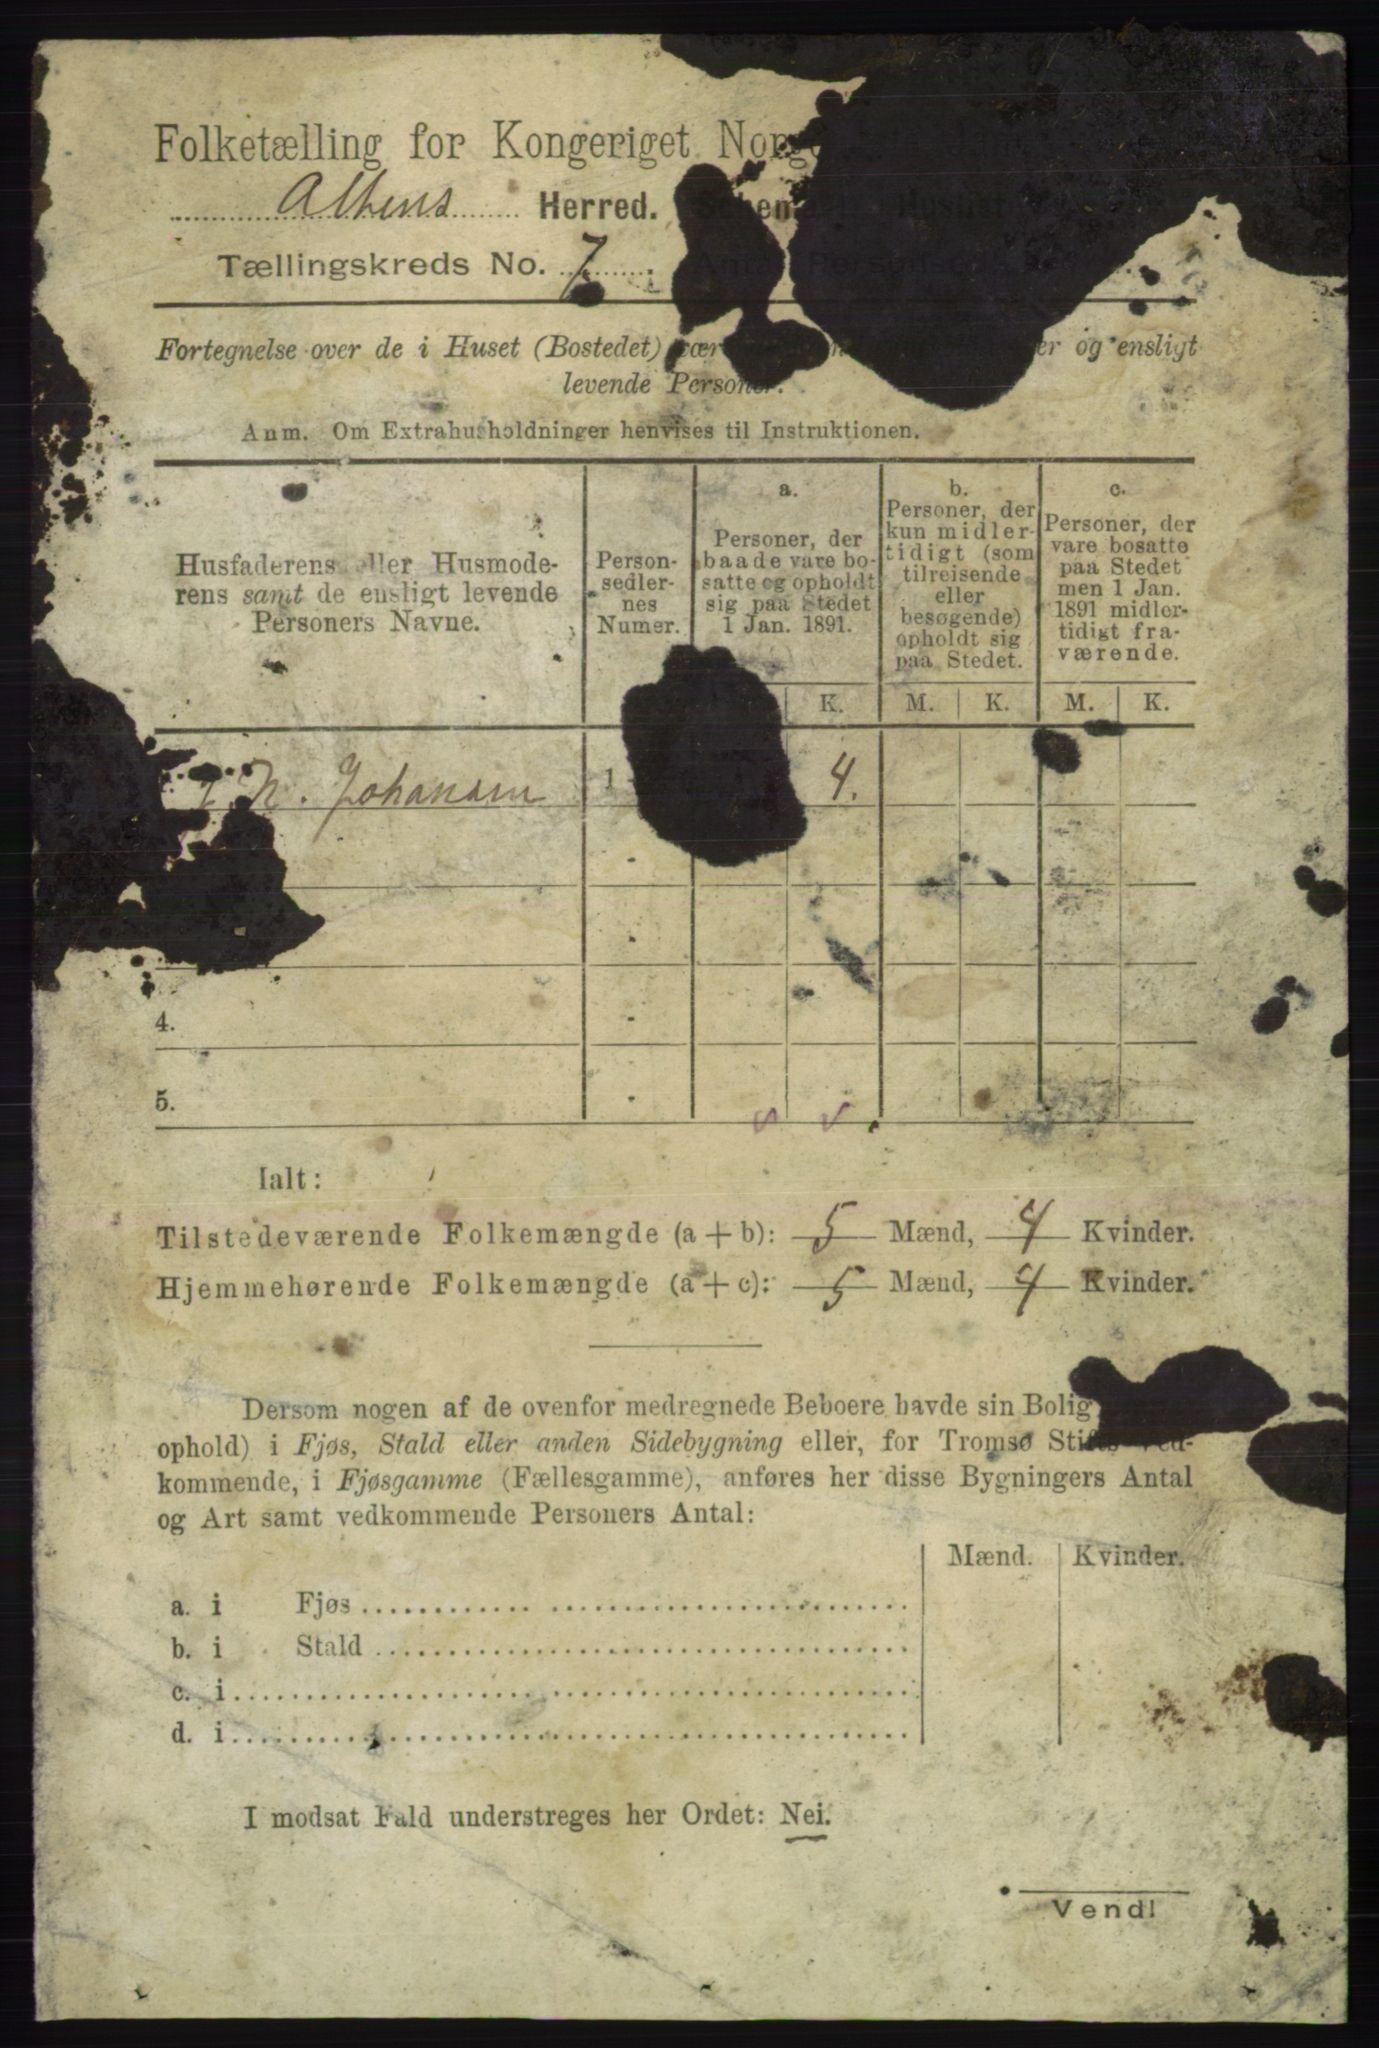 Folketælling for Kongeriget Norge
Altens Herred.
Tællingskreds No. 7.
Fortegnelse over de i Huset (Bostedet) og ensligt
levende Personer.
Anm. Om Extrahusholdninger henvises til Instruktionen.
Husfaderens eller Husmode-
rens samt de ensligt levende
Personers Navne.
Person-
sedler-
nes
Numer.
a.
Personer, der
baade vare bo-
satte og opholdt
sig paa Stedet
1 Jan. 1891.
K.
b.
Personer, der
kun midler-
tidigt (som
tilreisende
eller
besøgende)
opholdt sig
paa Stedet.
M. K.
c.
Personer, der
vare bosatte
paa Stedet
men 1 Jan.
1891 midler-
tidigt fra-
værende.
M. K.
N. Johansen 1 4.
4.
5.
Ialt:
Tilstedeværende Folkemængde (a + b): 5 Mænd, 4 Kvinder.
Hjemmehørende Folkemængde (a + c): 5 Mænd, 4 Kvinder.
Dersom nogen af de ovenfor medregnede Beboere havde sin Bolig
ophold) i Fjøs, Stald eller anden Sidebygning eller, for Tromsø Stifts Ved-
kommende, i Fjøsgamme (Fællesgamme), anføres her disse Bygningers Antal
og Art samt vedkommende Personers Antal:
Mænd. Kvinder.
a. i Fjøs
b. i Stald
c. i
d. i
I modsat Fald understreges her Ordet: Nei.
Vend!